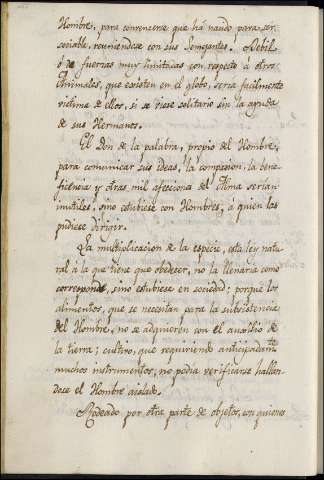 Hombre, para convencerse que há nacido para ser
sociable, reuniendose con sus Semejantes. Debil
ó de fuerzas muy limitadas con respecto á otros
Animales, que existen en el globo, seria facilmente
victima de ellos, si se viese solitario sin la ayuda
de sus Hermanos.
El Don de la palabra, propio del Hombre,
para comunicar sus ideas, la compasion, la bene-
ficencia y otras mil afecciones del Alma serian
inutiles, sino estubiese con Hombres, á quien las
pudiese dirigir.
La multiplicacion de la especie, esta ley natu-
ral á la que tiene que obedecer, no la llenaria como
corresponde, sino estubiese en sociedad; porque los
alimentos, que se necesitan para la subsistencia
del Hombre, no se adquieren con el auxilio de
la tierra; cultivo, que requiriendo anticipadamte
muchos instrumentos, no podia verificarse hallan-
dose el Hombre aislado.
Rodeado por otra parte de objetos, con quienes